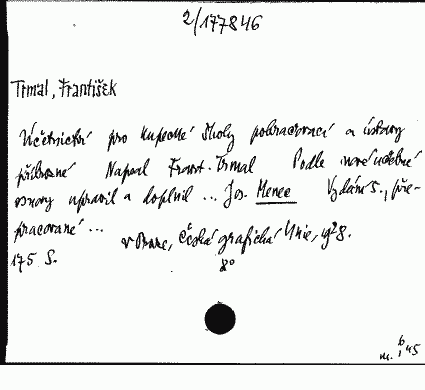 2/177846
Trmal, František
Účetnictví pro kupecké školy pokračovací a ústavy
příbuzné Napsal Frant. Trmal Podle nové učebné
osnovy upravil a doplnil ... Jos. Menec Vydání 5., pře-
pracované ...
v Praze, Česká grafická Unie, 1928.
175 S. 8°